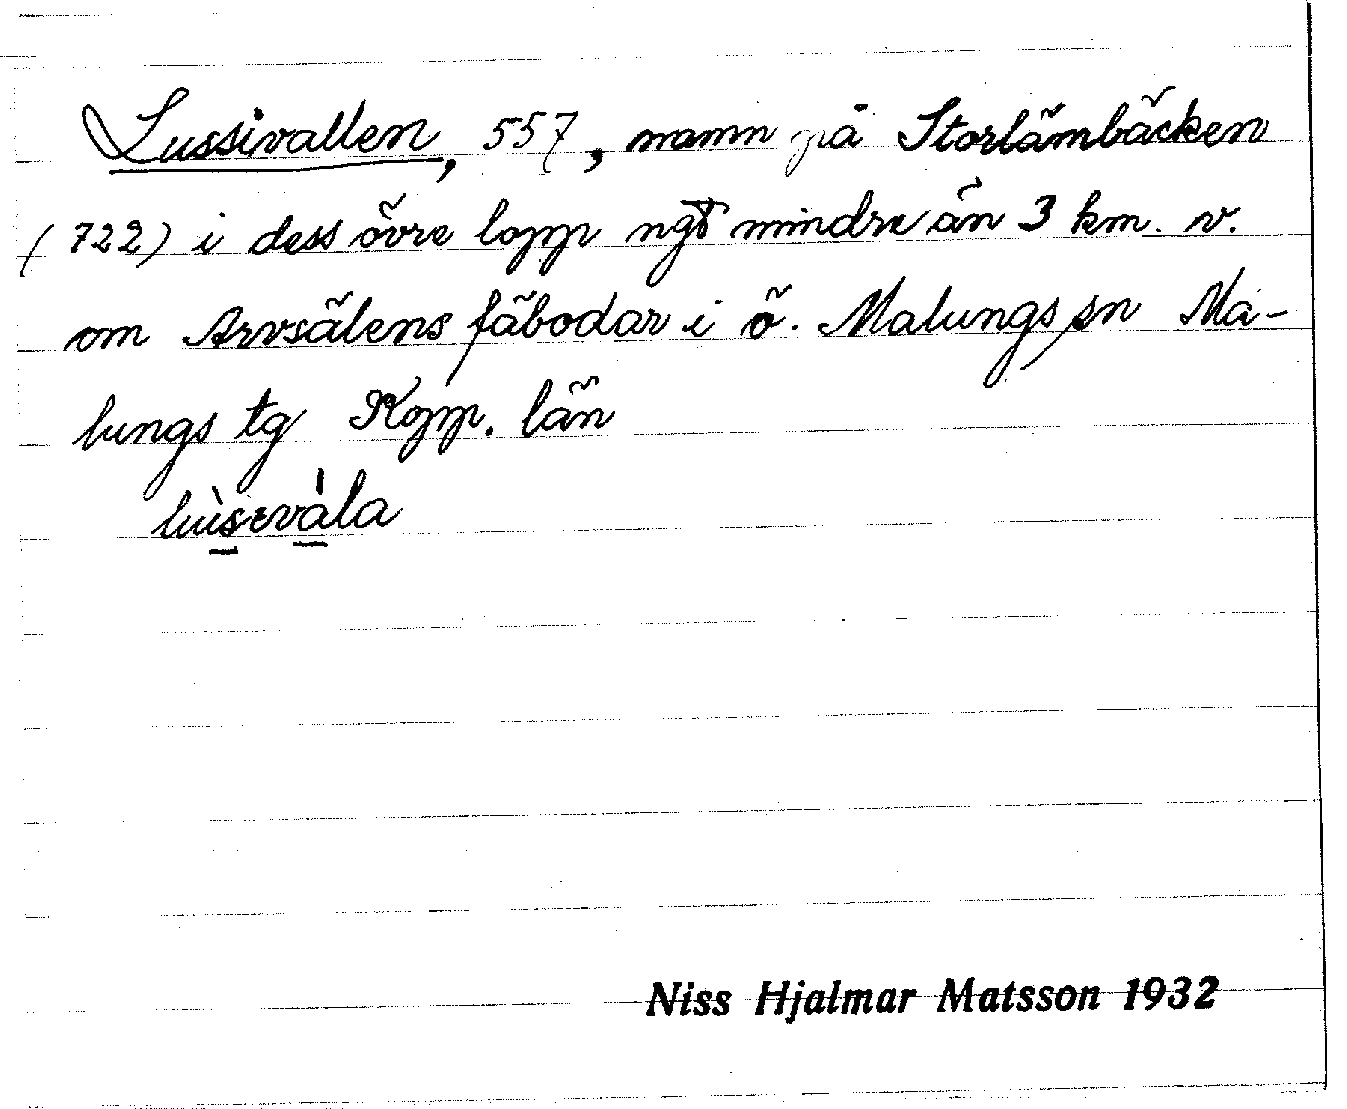 Lussivallen, 557, namn på Storlämbäcken
(722) i dess övre lopp ngt mindre än 3 km. v.
om Arvsälens fäbodar i ö. Malungs sn Ma-
lungs tg Kopp. län
lùsevàla
Niss Hjalmar Matsson 1932